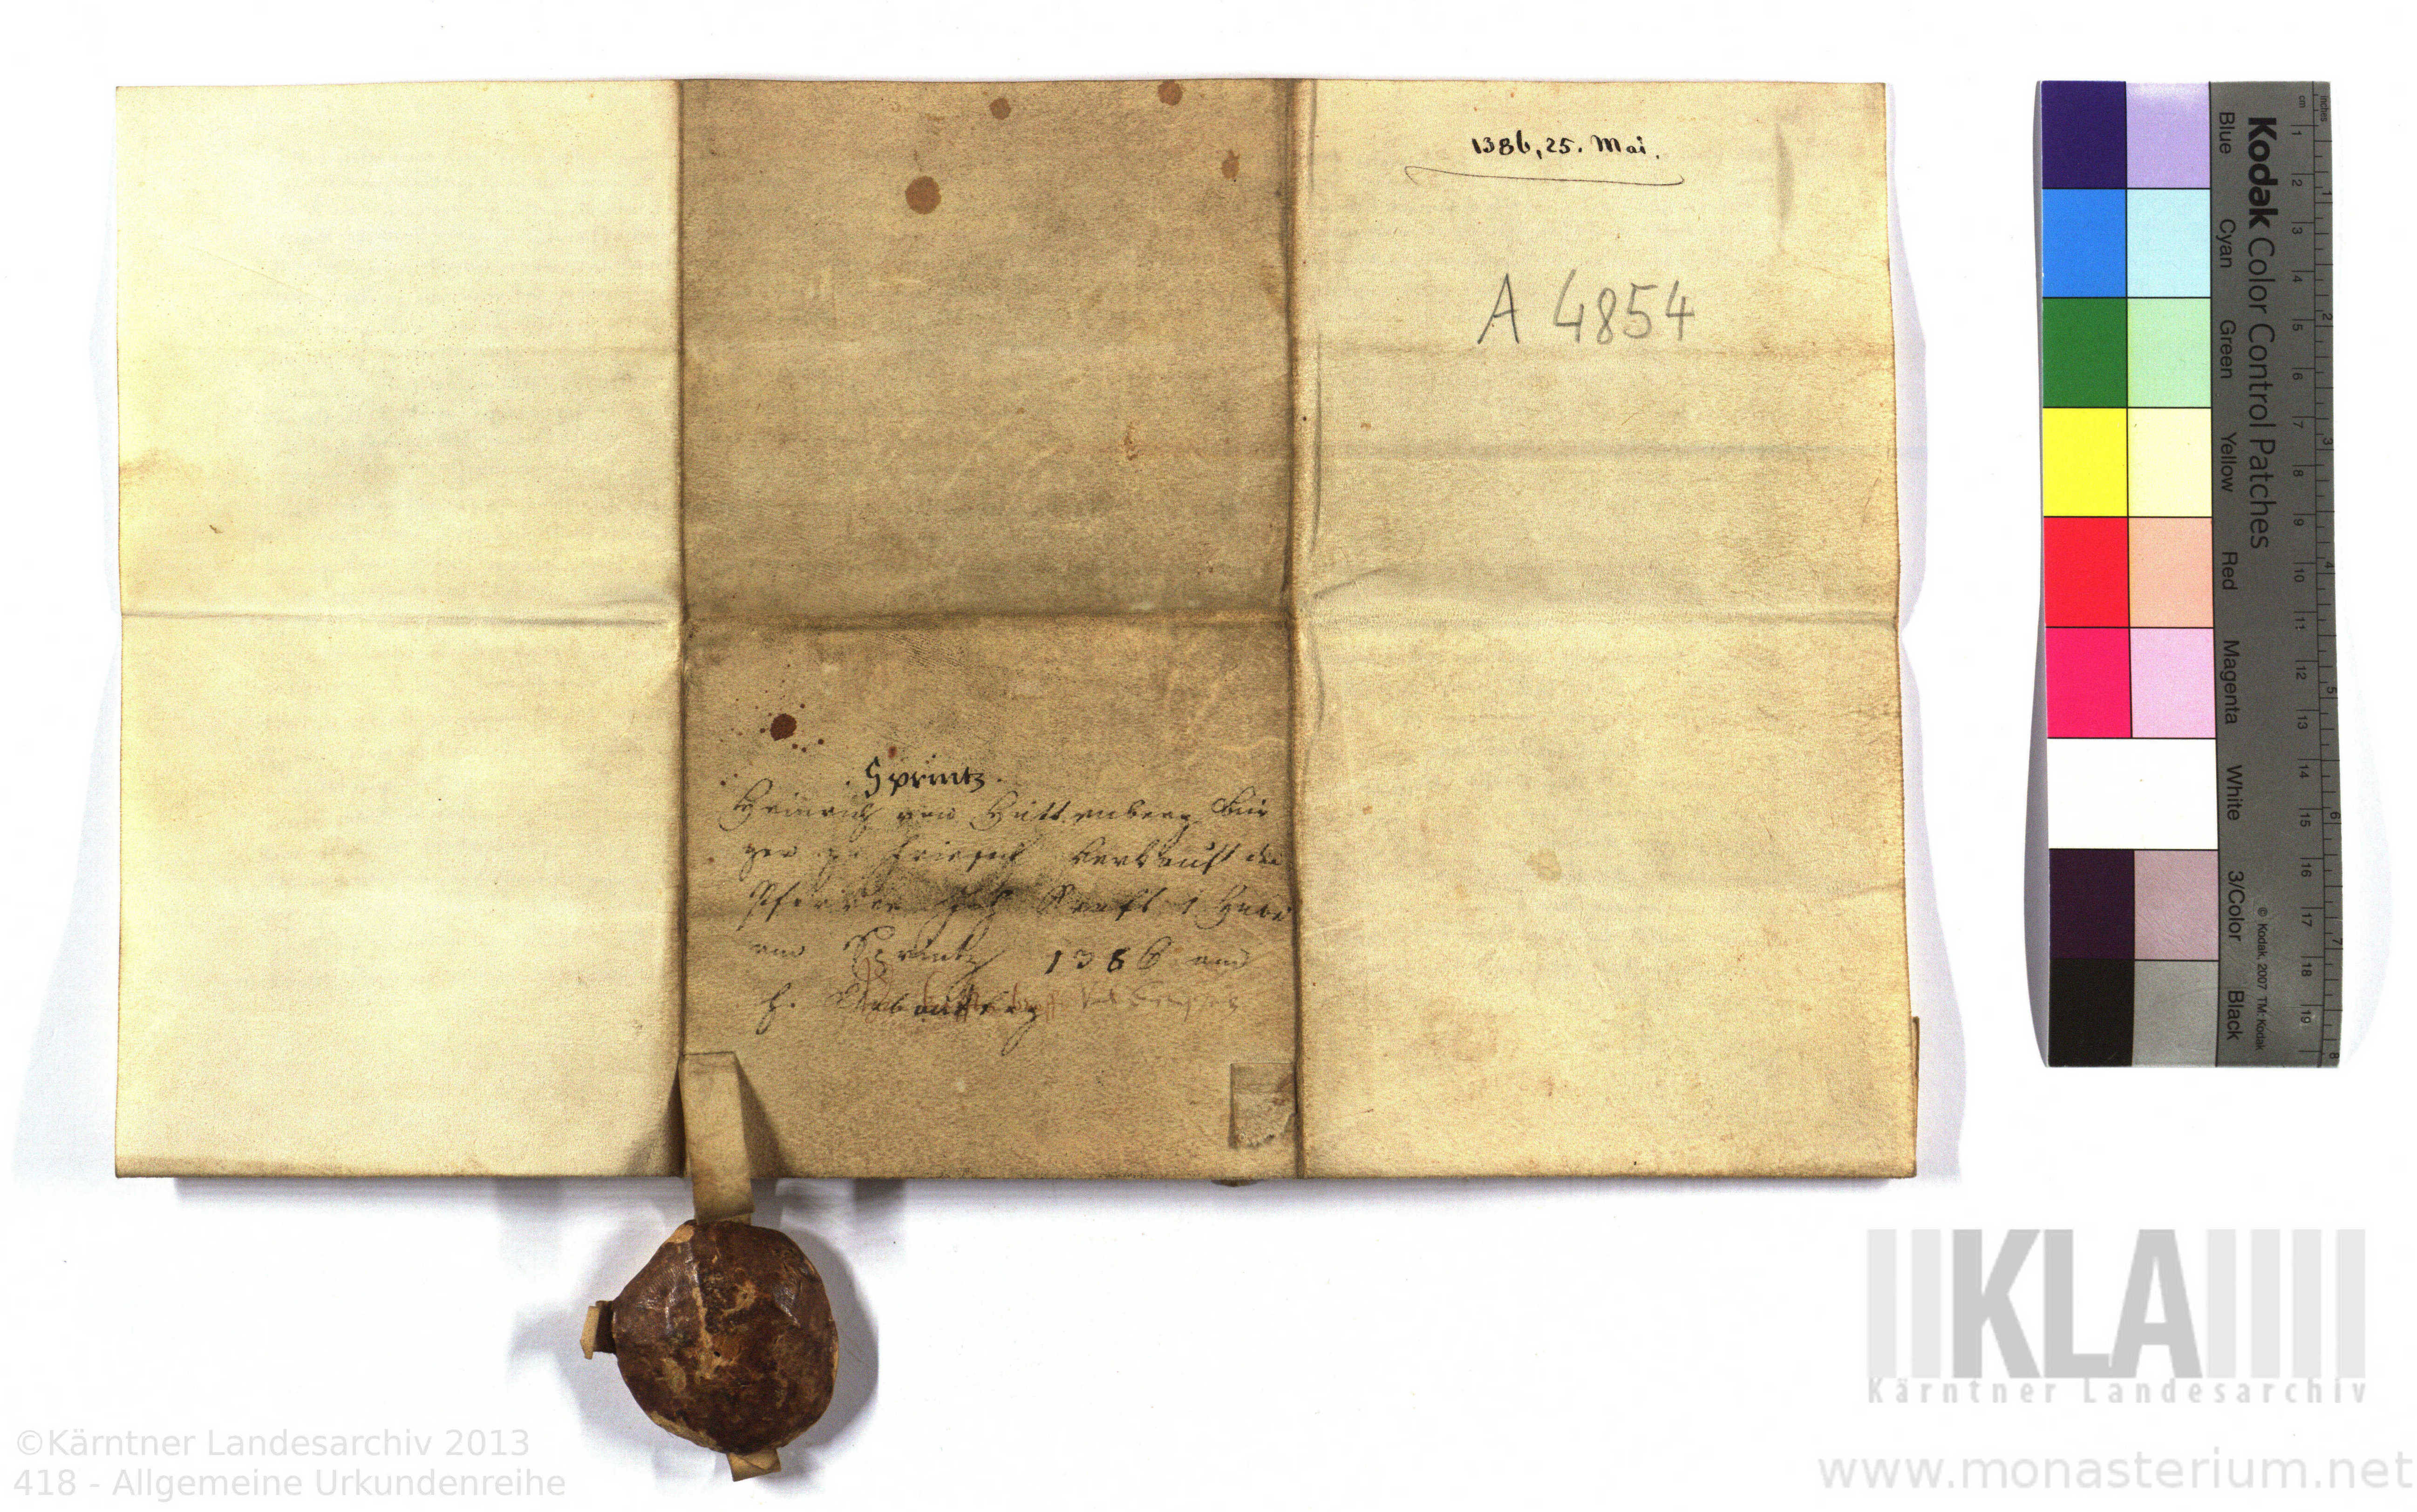 1386, 25. Mai.
A 4854
Sprintz.
Heinrich von Hüttenberg Bur
ger zu Friesach verkauft dem
Pfarrer 1 Hube
am Sprintz 1386 am
Kodak Color Control Patches
Blue Cyan Green Yellow Red Magenta White 3/Color Black
© Kodak, 2007 TM: Kodak
inches
cm
1 2 3 4 5 6 7 8 9 10 11 12 13 14 15 16 17 18 19
1 2 3 4 5 6 7 8
KLA
Kärntner Landesarchiv
©Kärntner Landesarchiv 2013
418 - Allgemeine Urkundenreihe
www.monasterium.net